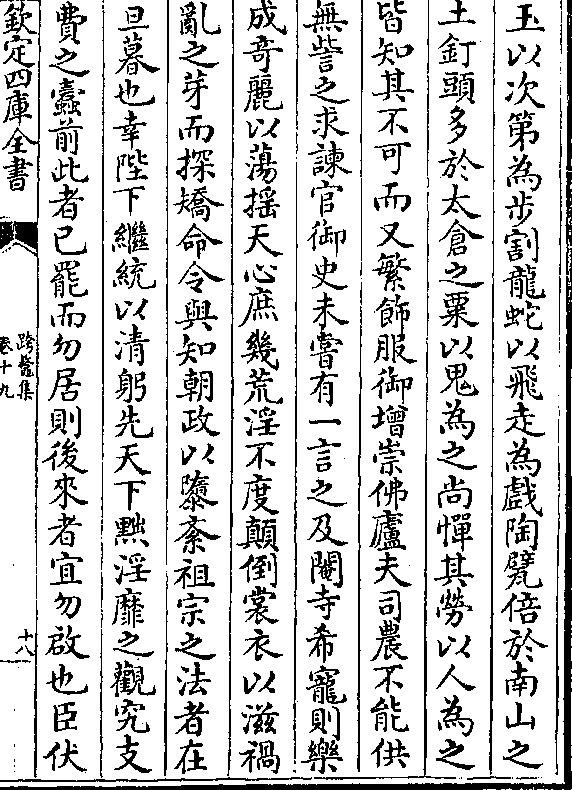 玉以次第為步割龍蛇以飛走為戲陶甓倍於南山之
土釘頭多於太倉之粟以鬼為之尚憚其勞以人為之
皆知其不可而又繁飾服御增崇佛廬夫司農不能供
無訾之求諫官御史未嘗有一言之及閹寺希寵則樂
成奇麗以蕩揺天心庶幾荒淫不度顛倒裳衣以滋禍
亂之芽而探矯命令與知朝政以隳紊祖宗之法者在
旦暮也幸陛下繼統以清躬先天下黜淫靡之觀究支
費之蠹前此者已罷而勿居則後來者宜勿啟也臣伏
欽定四庫全書
跨鼇集
卷十九
十八